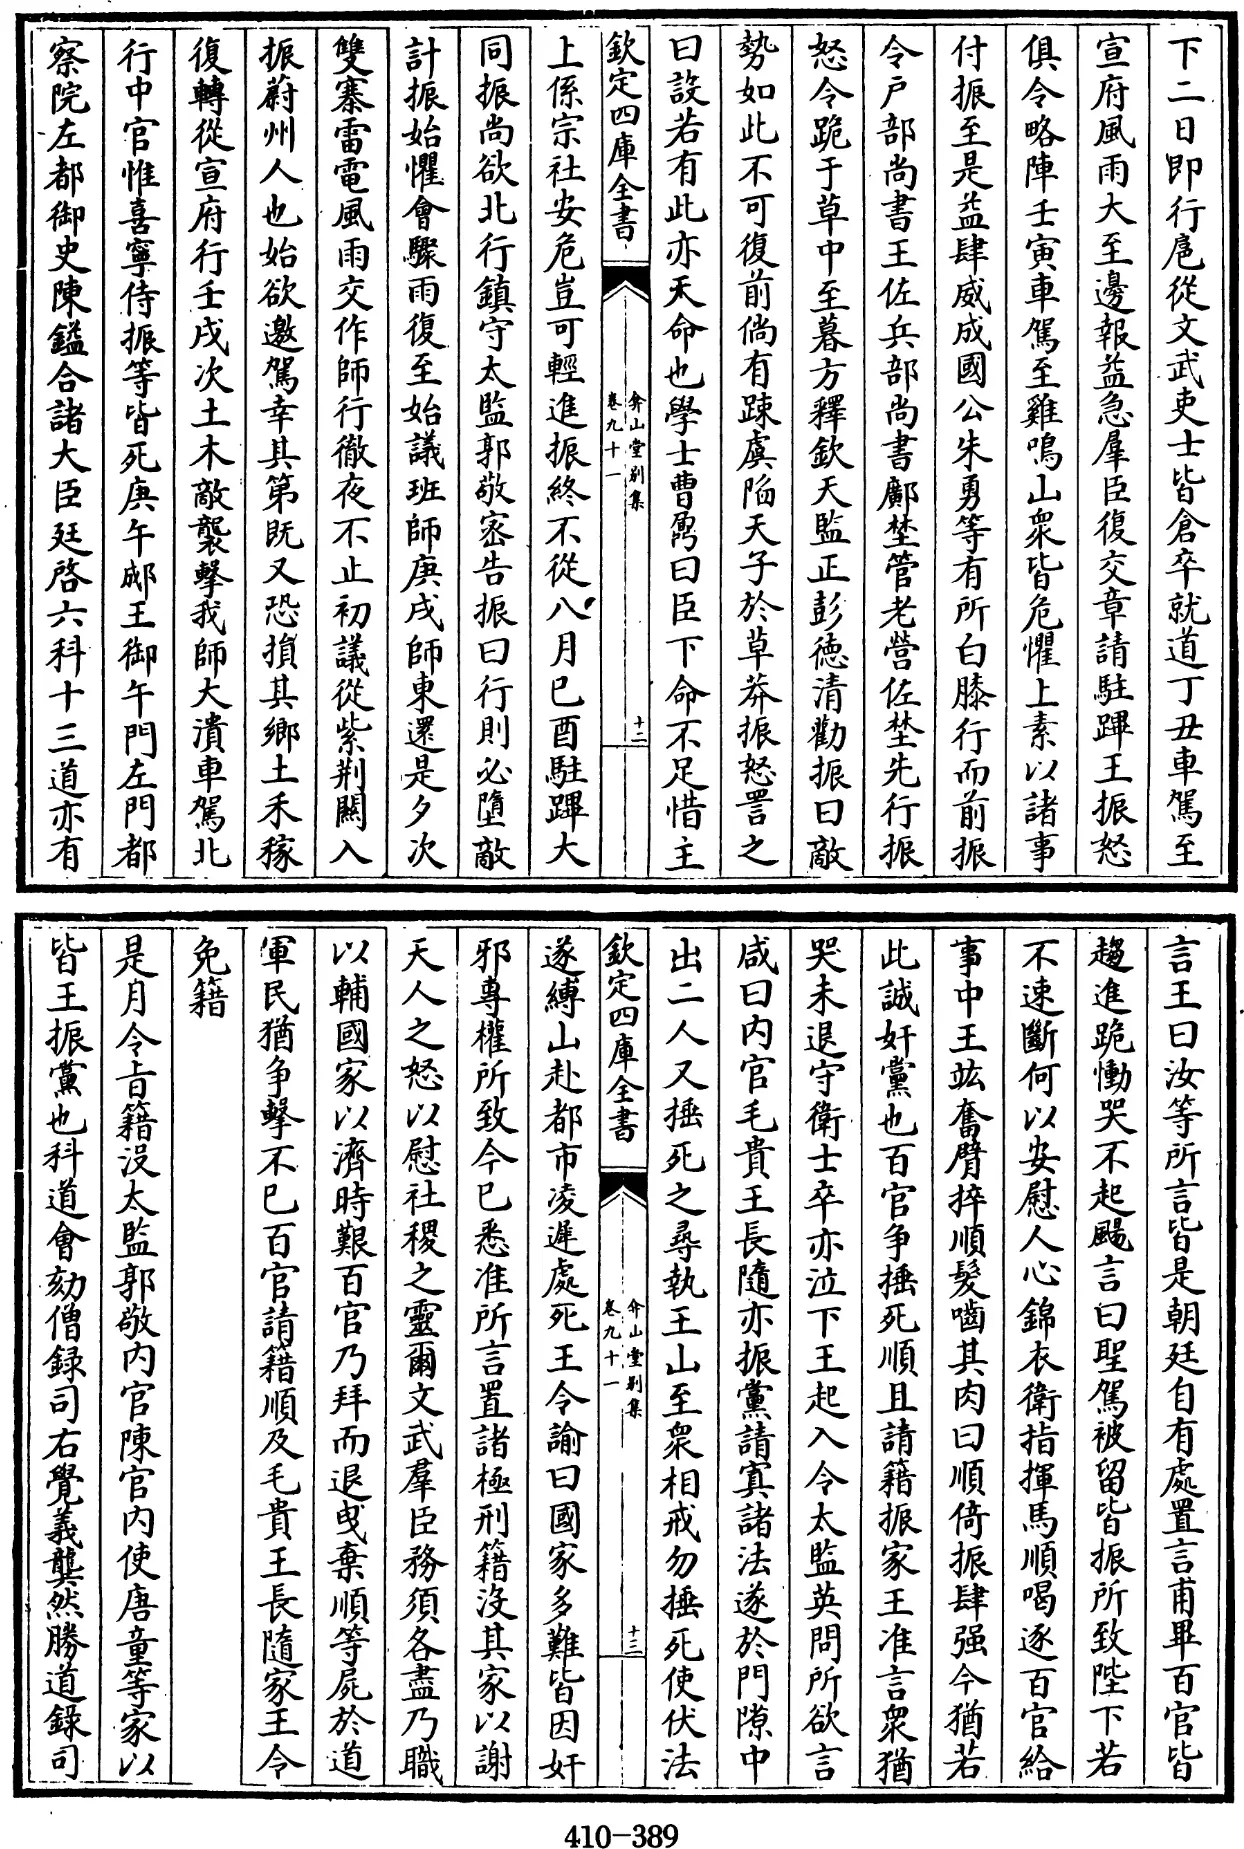 下二日即行扈從文武吏士皆倉卒就道丁丑車駕至
宣府風雨大至邊報益急羣臣復交章請駐蹕王振怒
俱令略陣壬寅車駕至雞鳴山衆皆危懼上素以諸事
付振至是益肆威成國公朱勇等有所白膝行而前振
令户部尚書王佐兵部尚書鄺埜管老營佐埜先行振
怒令跪于草中至暮方釋欽天監正彭德清勸振曰敵
勢如此不可復前倘有踈虞陷天子於草莽振怒詈之
曰設若有此亦天命也學士曹鼐曰臣下命不足惜主
欽定四庫全書
弇山堂别集
卷九十一
十二
上係宗社安危豈可輕進振終不從八月已酉駐蹕大
同振尚欲北行鎮守太監郭敬密告振曰行則必墮敵
計振始懼會驟雨復至始議班師庚戌師東還是夕次
雙寨雷電風雨交作師行徹夜不止初議從紫荆關入
振蔚州人也始欲邀駕幸其第既又恐損其鄉土禾稼
復轉從宣府行壬戌次土木敵襲擊我師大潰車駕北
行中官惟喜寧侍振等皆死庚午郕王御午門左門都
察院左都御史陳鎰合諸大臣廷啓六科十三道亦有
言王曰汝等所言皆是朝廷自有處置言甫畢百官皆
趨進跪慟哭不起颺言曰聖駕被留皆振所致陛下若
不速斷何以安慰人心錦衣衛指揮馬順喝逐百官給
事中王竑奮臂捽順髮嚙其肉曰順倚振肆强今猶若
此誠奸黨也百官争捶死順且請籍振家王准言衆猶
哭未退守衛士卒亦泣下王起入令太監英問所欲言
咸曰内官毛貴王長隨亦振黨請寘諸法遂於門隙中
出二人又捶死之尋執王山至衆相戒勿捶死使伏法
欽定四庫全書
弇山堂别集
卷九十一
十三
遂縛山赴都市凌遲處死王令諭曰國家多難皆因奸
邪専權所致今已悉准所言置諸極刑籍没其家以謝
天人之怒以慰社稷之靈爾文武羣臣務須各盡乃職
以輔國家以濟時艱百官乃拜而退曵棄順等屍於道
軍民猶争擊不已百官請籍順及毛貴王長隨家王令
免籍
是月令旨籍没太監郭敬内官陳官内使唐童等家以
皆王振黨也科道會劾僧録司右覺義龔然勝道錄司
410-389